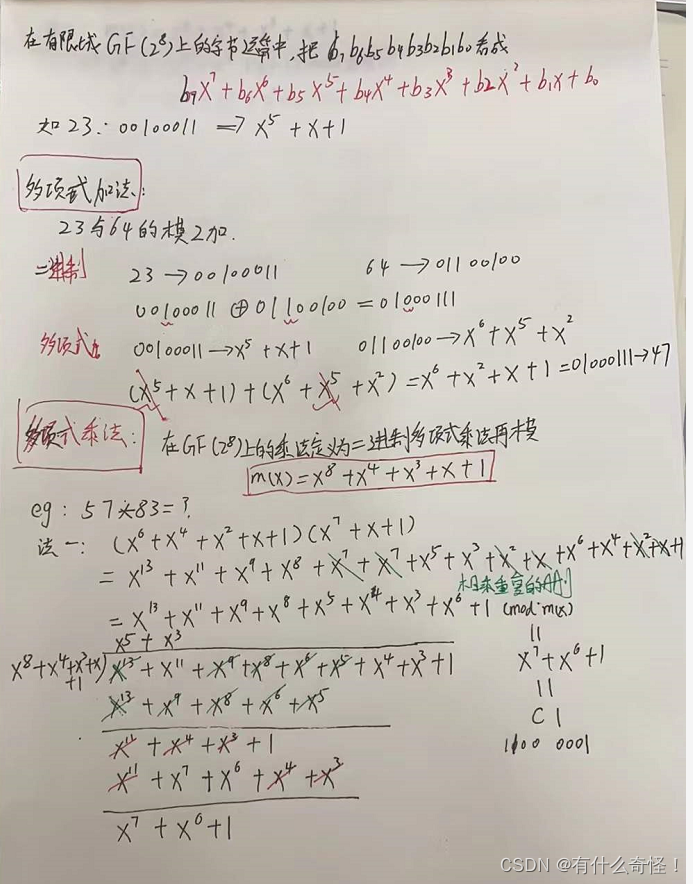 在有限域GF(2⁸)上的字节运算中,把 b₇b₆b₅b₄b₃b₂b₁b₀看成
b₇x⁷+b₆x⁶+b₅x⁵+b₄x⁴+b₃x³+b₂x²+b₁x+b₀
如23:00100011 => x⁵+x+1
多项式加法:
23与64的模2加.
二进制 23→00100011 64→01100100
00100011⊕01100100=01000111
多项式 00100011→x⁵+x+1 01100100→x⁶+x⁵+x²
(x⁵+x+1)+(x⁶+x⁵+x²)=x⁶+x²+x+1=01000111→47
多项式乘法: 在GF(2⁸)上的乘法定义为二进制多项式乘法再模
m(x)=x⁸+x⁴+x³+x+1
eg: 57*83=?
法一: (x⁶+x⁴+x²+x+1)(x⁷+x+1)
=x¹³+x¹¹+x⁹+x⁸+x⁷+x⁷+x⁵+x³+x²+x+x⁶+x⁴+x²+x+1
相乘重复的
=x¹³+x¹¹+x⁹+x⁸+x⁵+x⁴+x³+x⁶+1 (mod m(x))
x⁵+x³
x⁸+x⁴+x³+x+1)x¹³+x¹¹+x⁹+x⁸+x⁶+x⁵+x⁴+x³+1
x¹³+x⁹+x⁸+x⁶+x⁵
x¹¹+x⁴+x³+1
x¹¹+x⁷+x⁶+x⁴+x³
x⁷+x⁶+1
||
x⁷+x⁶+1
||
C1
1100 0001
CSDN @有什么奇怪!